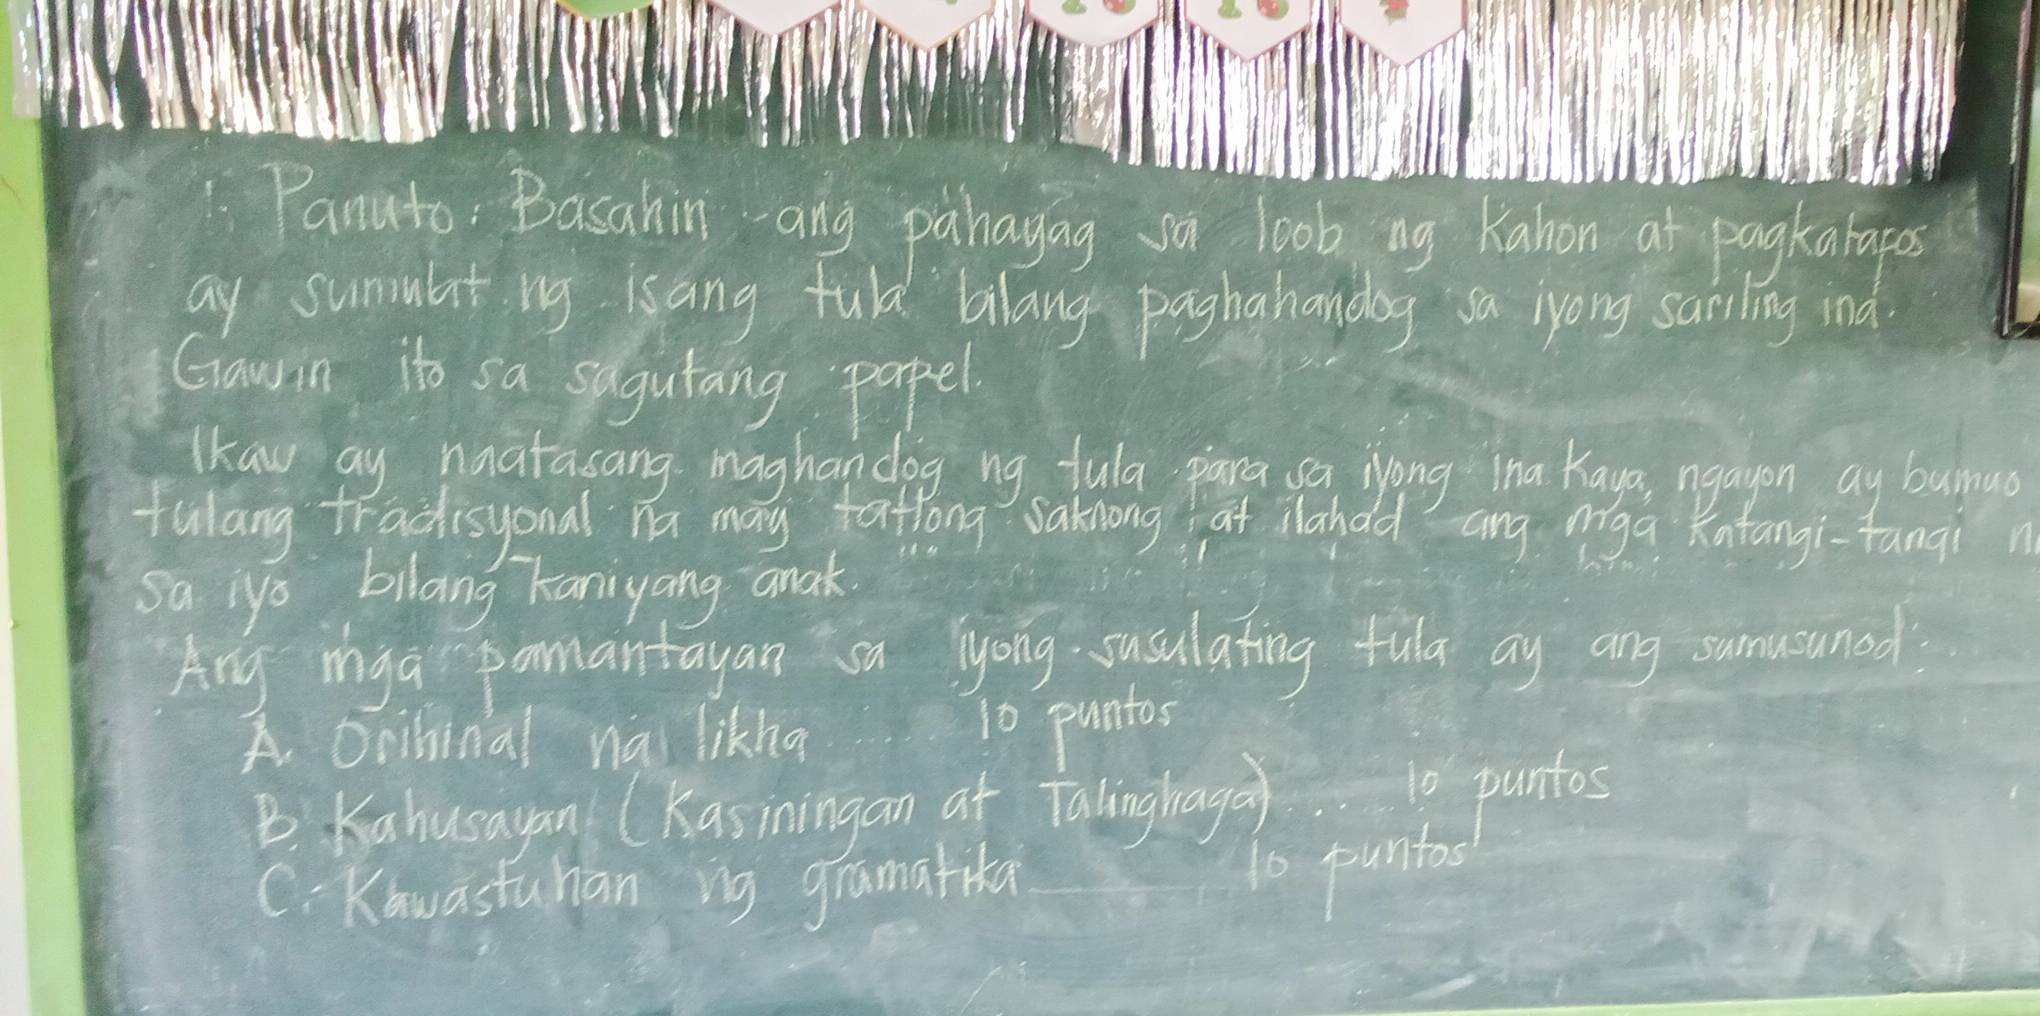 1. Panuto: Basahin ang pahayag sa loob ng kahon at pagkatapos
ay sumulat ng isang tula bilang paghahandog sa iyong sariling ina.
Gawin ito sa sagutang papel.
Ikaw ay naatasang maghandog ng tula para sa iyong ina Kaya, ngayon ay bumuo
tulang tradisyonal na may tatlong saknong at ilahad ang mga katangi-tangi
sa iyo bilang kaniyang anak.
Ang mga pamantayan sa iyong susulating tula ay ang sumusunod:
A. Orihinal na likha ...... 10 puntos
B. Kahusayan (Kasiningan at Talinghaga) ...... 10 puntos
C. Kawastuhan ng gramatika ______ 10 puntos